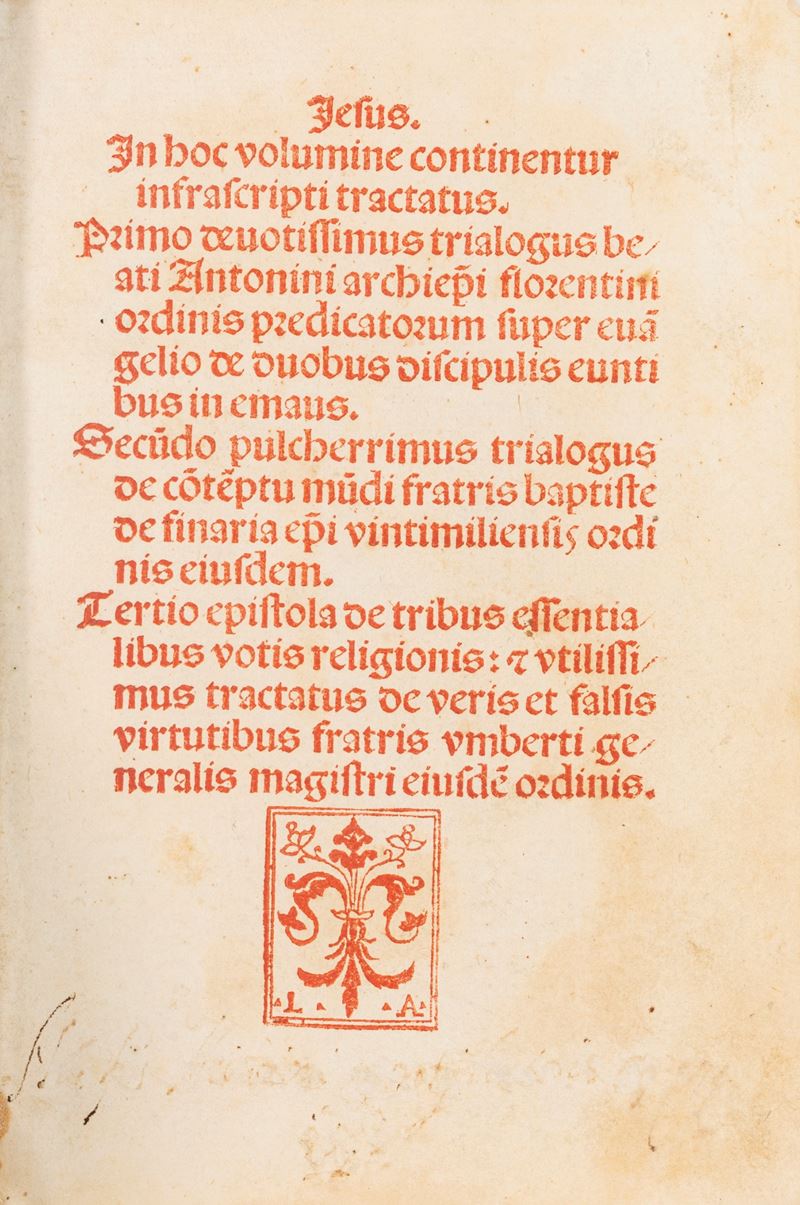 Jesus.
In hoc volumine continentur
infrascripti tractatus.
Primo deuotissimus trialogus be/
ati Antonini archiep̄i florentini
ordinis predicatorum super euā
gelio de duobus discipulis eunti
bus in emaus.
Secūdo pulcherrimus trialogus
de cōtēptu mūdi fratris baptiste
de finaria ep̄i vintimiliensis ordi
nis eiusdem.
Tertio epistola de tribus essentia/
libus votis religionis: ⁊ vtilissi/
mus tractatus de veris et falsis
virtutibus fratris vmberti ge/
neralis magistri eiusdē ordinis.
L A